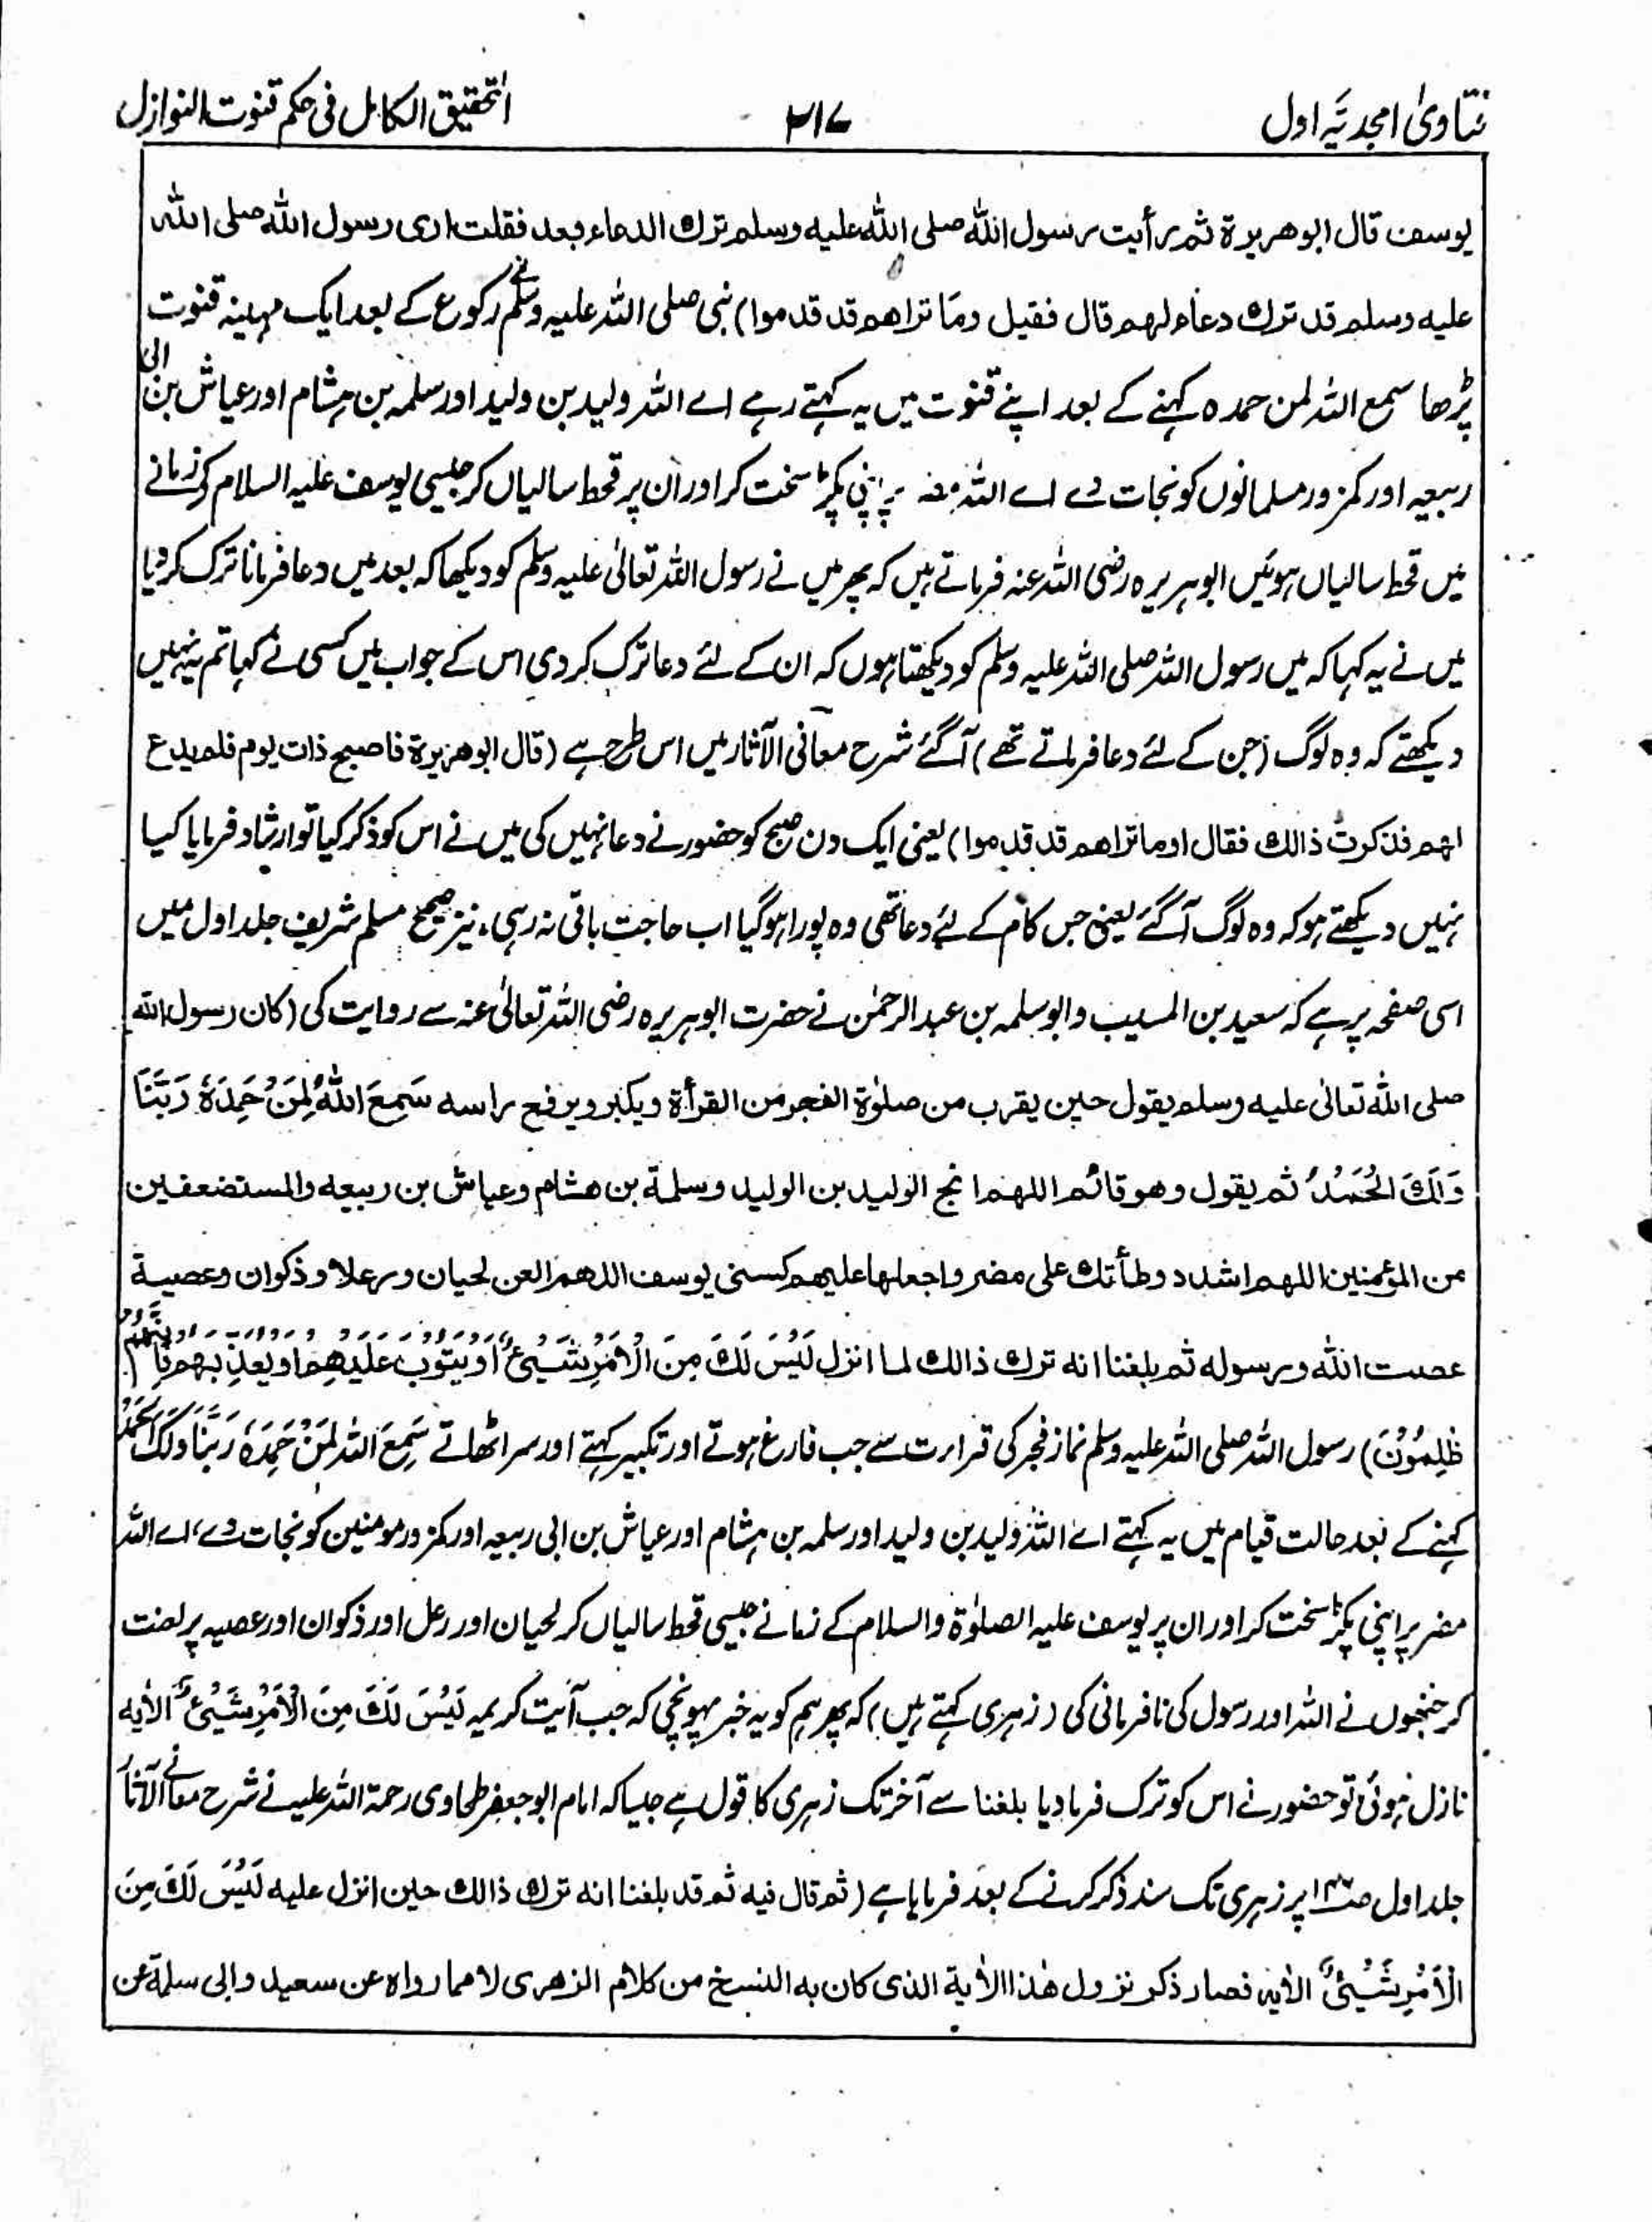 فتاویٰ امجدیہ اول
۳۱۷
التحقیق الکامل فی حکم قنوت النوازل
یوسف قال ابوھریرۃ ثم رأیت رسول اللہ صلی اللہ علیہ وسلم ترک الدعاء بعد فقلت اری رسول اللہ صلی اللہ
علیہ وسلم قد ترک دعاء لھم قال فقیل وما تراھم قد قدموا) نبی صلی اللہ علیہ وسلم نے رکوع کے بعد ایک مہینہ قنوت
پڑھا سمع اللہ لمن حمدہ کہنے کے بعد اپنے قنوت میں یہ کہتے رہے اے اللہ ولید بن ولید اور سلمہ بن ہشام اور عیاش بن ابی
ربیعہ اور کمزور مسلمانوں کو نجات دے اے اللہ مضر پر اپنی پکڑ سخت کر اور ان پر قحط سالیاں کر جیسی یوسف علیہ السلام کے زمانے
میں قحط سالیاں ہوئیں ابو ہریرہ رضی اللہ عنہ فرماتے ہیں کہ پھر میں نے رسول اللہ تعالیٰ علیہ وسلم کو دیکھا کہ بعد میں دعا فرمانا ترک کردیا
میں نے یہ کہا کہ میں رسول اللہ صلی اللہ علیہ وسلم کو دیکھتا ہوں کہ ان کے لئے دعا ترک کردی اس کے جواب میں کسی نے کہا تم یہ نہیں
دیکھتے کہ وہ لوگ (جن کے لئے دعا فرماتے تھے) آگئے شرح معانی الآثار میں اس طرح ہے (قال ابوھریرۃ فاصبح ذات یوم فلم یدع
لھم فذکرت ذالک فقال اوما تراھم قد قدموا) یعنی ایک دن صبح کو حضور نے دعا نہیں کی میں نے اس کو ذکر کیا تو ارشاد فرمایا کیا
نہیں دیکھتے ہو کہ وہ لوگ آگئے یعنی جس کام کے لئے دعا تھی وہ پورا ہوگیا اب حاجت باقی نہ رہی، نیز صحیح مسلم شریف جلد اول میں
اسی صفحہ پر ہے کہ سعید بن المسیب و ابوسلمہ بن عبدالرحمٰن نے حضرت ابوہریرہ رضی اللہ تعالیٰ عنہ سے روایت کی (کان رسول اللہ
صلی اللہ تعالیٰ علیہ وسلم یقول حین یقرب من صلوٰۃ الفجر من القرأۃ ویکبر ویرفع راسہ سَمِعَ اللہُ لِمَنْ حَمِدَہٗ رَبَّنَا
وَلَکَ الْحَمْدُ ثم یقول وھو قائم اللھم انج الولید بن الولید وسلمۃ بن ھشام وعیاش بن ربیعہ والمستضعفین
من المؤمنین اللھم اشدد وطأتک علی مضر واجعلھا علیھم کسنی یوسف اللھم العن لحیان ورعلا وذکوان وعصیۃ
عصت اللہ ورسولہ ثم بلغنا انہ ترک ذالک لما انزل لَیْسَ لَکَ مِنَ الْاَمْرِ شَیْئٌ اَوْ یَتُوْبَ عَلَیْھِمْ اَوْ یُعَذِّبَھُمْ فَاِنَّھُمْ
ظٰلِمُوْنَ) رسول اللہ صلی اللہ علیہ وسلم نماز فجر کی قراءت سے جب فارغ ہوتے اور تکبیر کہتے اور سر اٹھاتے سَمِعَ اللہُ لِمَنْ حَمِدَہٗ رَبَّنَا وَلَکَ الْحَمْدُ
کہنے کے بعد حالت قیام میں یہ کہتے اے اللہ ولید بن ولید اور سلمہ بن ہشام اور عیاش بن ابی ربیعہ اور کمزور مومنین کو نجات دے، اے اللہ
مضر پر اپنی پکڑ سخت کر اور ان پر یوسف علیہ الصلوٰۃ والسلام کے زمانے جیسی قحط سالیاں کر لحیان اور رعل اور ذکوان اور عصیہ پر لعنت
کر جنہوں نے اللہ اور رسول کی نافرمانی کی (زہری کہتے ہیں) کہ پھر ہم کو یہ خبر پہونچی کہ جب آیت کریمہ لَیْسَ لَکَ مِنَ الْاَمْرِ شَیْئٌ الاٰیہ
نازل ہوئی تو حضور نے اس کو ترک فرمادیا بلغنا سے آخر تک زہری کا قول ہے جیسا کہ امام ابوجعفر طحاوی رحمۃ اللہ علیہ نے شرح معانی الآثار
جلد اول پر زہری تک سند ذکر کرنے کے بعد فرمایا ہے (ثم قال فیہ ثم قد بلغنا انہ ترک ذالک حین انزل علیہ لَیْسَ لَکَ مِنَ
الْاَمْرِ شَیْئٌ الاٰیہ فصار ذکر نزول ھٰذا الاٰیۃ الذی کان بہ النسخ من کلام الزھری لا مما رواہ عن سعید وابی سلمۃ عن